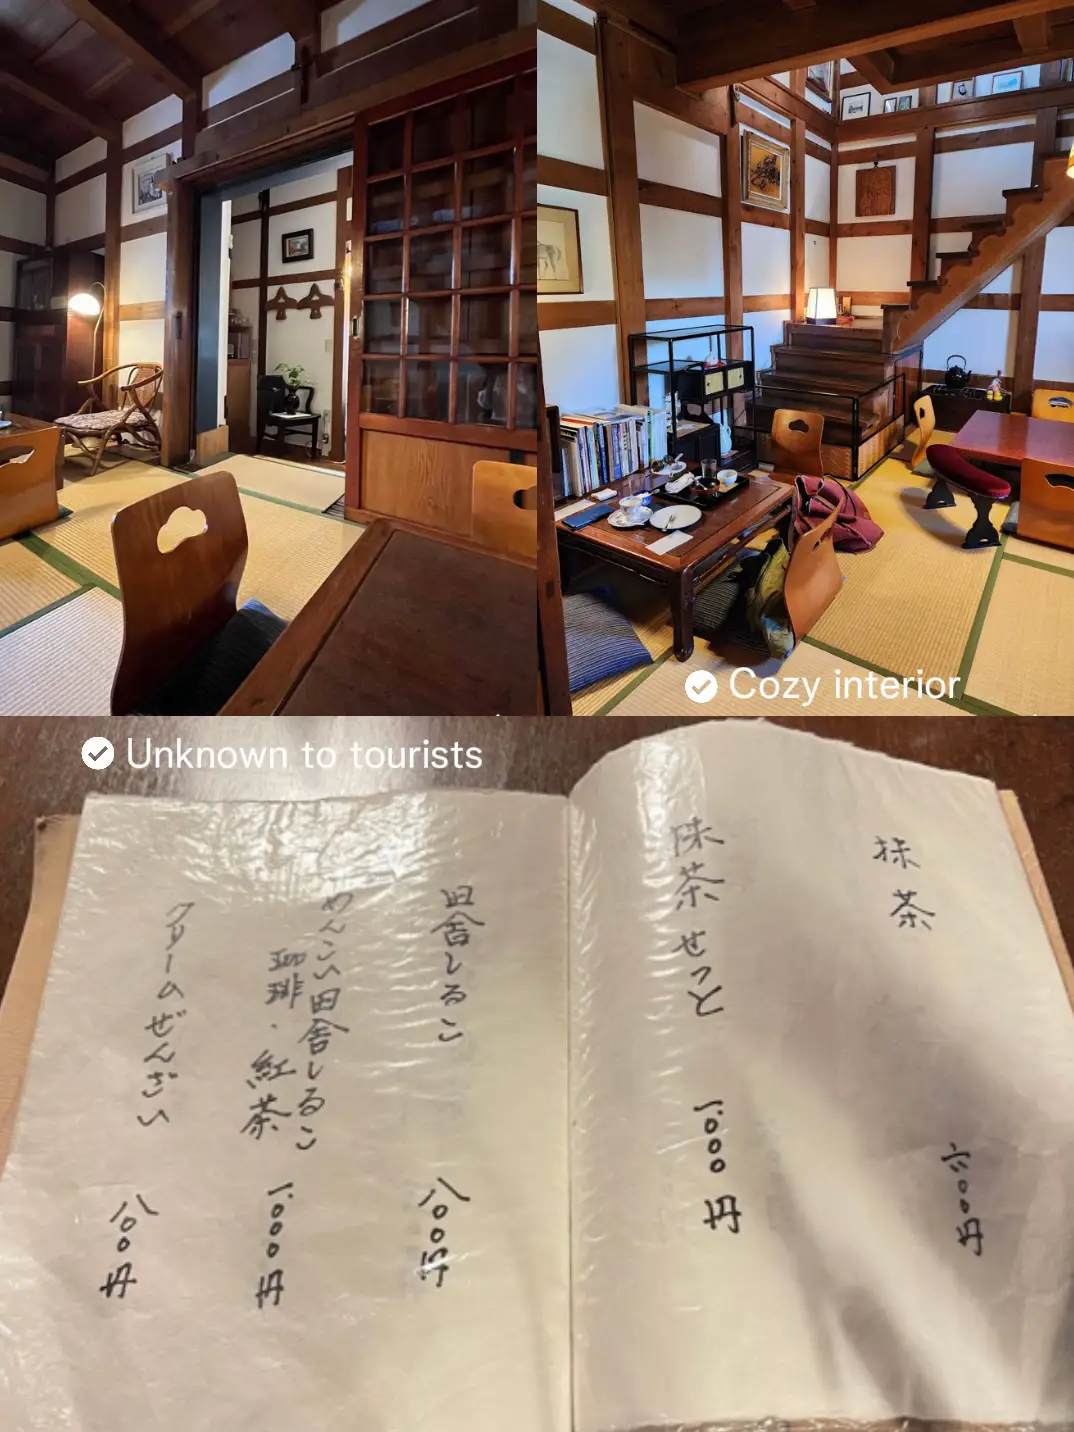 Cozy interior
Unknown to tourists
抹茶
六〇〇円
抹茶せっと
一、〇〇〇円
田舎しるこ
八〇〇円
めんこい田舎しるこ
珈琲・紅茶
一、〇〇〇円
クリームぜんざい
八〇〇円